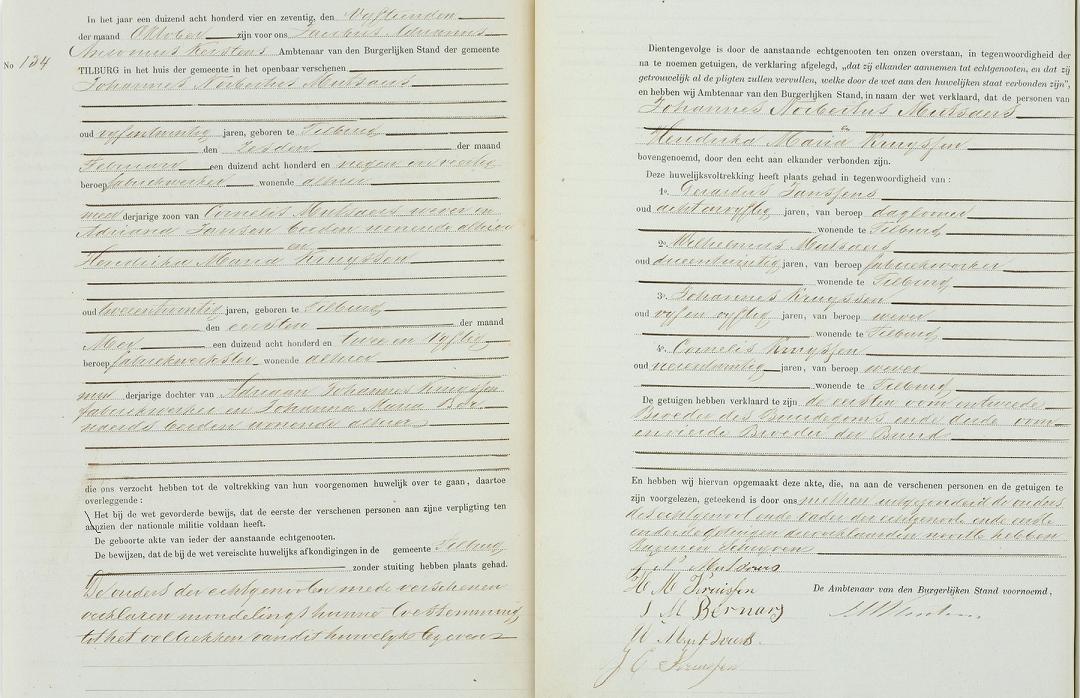 In het jaar een duizend acht honderd vier en zeventig, den Vyftienden
der maand Oktober zijn voor ons Jacobus Adrianus
Antonius Kerstens Ambtenaar van den Burgerlijken Stand der gemeente
No 134
TILBURG in het huis der gemeente in het openbaar verschenen
Johannes Norbertus Mutsaers
oud vyfentwintig jaren, geboren te Tilburg
den Zesden der maand
Februari een duizend acht honderd en negen en veertig
beroep fabriekwerker wonende alhier
meerderjarige zoon van Cornelis Mutsaers wever en
Adriana Jansen beiden wonende alhier
en
Hendrika Maria Kruyssen
oud tweeentwintig jaren, geboren te Tilburg
den eersten der maand
Mei een duizend acht honderd en twee en Vyftig
beroep fabriekwerkster wonende alhier
minderjarige dochter van Adriaan Johannes Kruyssen
fabriekwerker en Johanna Maria Ber-
naards beiden wonende alhier
die ons verzocht hebben tot de voltrekking van hun voorgenomen huwelijk over te gaan, daartoe
overleggende :
Het bij de wet gevorderde bewijs, dat de eerste der verschenen personen aan zijne verpligting ten
aanzien der nationale militie voldaan heeft.
De geboorte akte van ieder der aanstaande echtgenooten.
De bewijzen, dat de bij de wet vereischte huwelijks afkondigingen in de gemeente Tilburg
zonder stuiting hebben plaats gehad.
De ouders der echtgenooten mede verschenen
verklaren mondelings hunne toestemming
tot het voltrekken van dit huwelyk te geven
Dientengevolge is door de aanstaande echtgenooten ten onzen overstaan, in tegenwoordigheid der
na te noemen getuigen, de verklaring afgelegd, „dat zij elkander aannemen tot echtgenooten, en dat zij
getrouwelijk al de pligten zullen vervullen, welke door de wet aan den huwelijken staat verbonden zijn”,
en hebben wij Ambtenaar van den Burgerlijken Stand, in naam der wet verklaard, dat de personen van
Johannes Norbertus Mutsaers
en
Hendrika Maria Kruyssen
bovengenoemd, door den echt aan elkander verbonden zijn.
Deze huwelijksvoltrekking heeft plaats gehad in tegenwoordigheid van :
1o. Gerardus Janssens
oud achtenvyftig jaren, van beroep daglooner
wonende te Tilburg
2o. Wilhelmus Mutsaers
oud drieentwintig jaren, van beroep fabriekwerker
wonende te Tilburg
3o. Johannes Kruyssen
oud vyfenvyftig jaren, van beroep wever
wonende te Tilburg
4o. Cornelis Kruyssen
oud vierentwintig jaren, van beroep wever
wonende te Tilburg
De getuigen hebben verklaard te zijn de eersten oom en tweede
Broeder des Bruidegoms en de derde oom
en vierde Broeder der Bruid
En hebben wij hiervan opgemaakt deze akte, die, na aan de verschenen personen en de getuigen te
zijn voorgelezen, geteekend is door ons met hen uitgezonderd de ouders
des echtgenoot en de vader der echtgenoote en de eerste
en derde getuigen die verklaarden nooit te hebben
kunnen schryven
J N Mutsaers
H M Kruissen
De Ambtenaar van den Burgerlijken Stand voornoemd,
J M Bernars
W Mutsaers
J C Kruissen